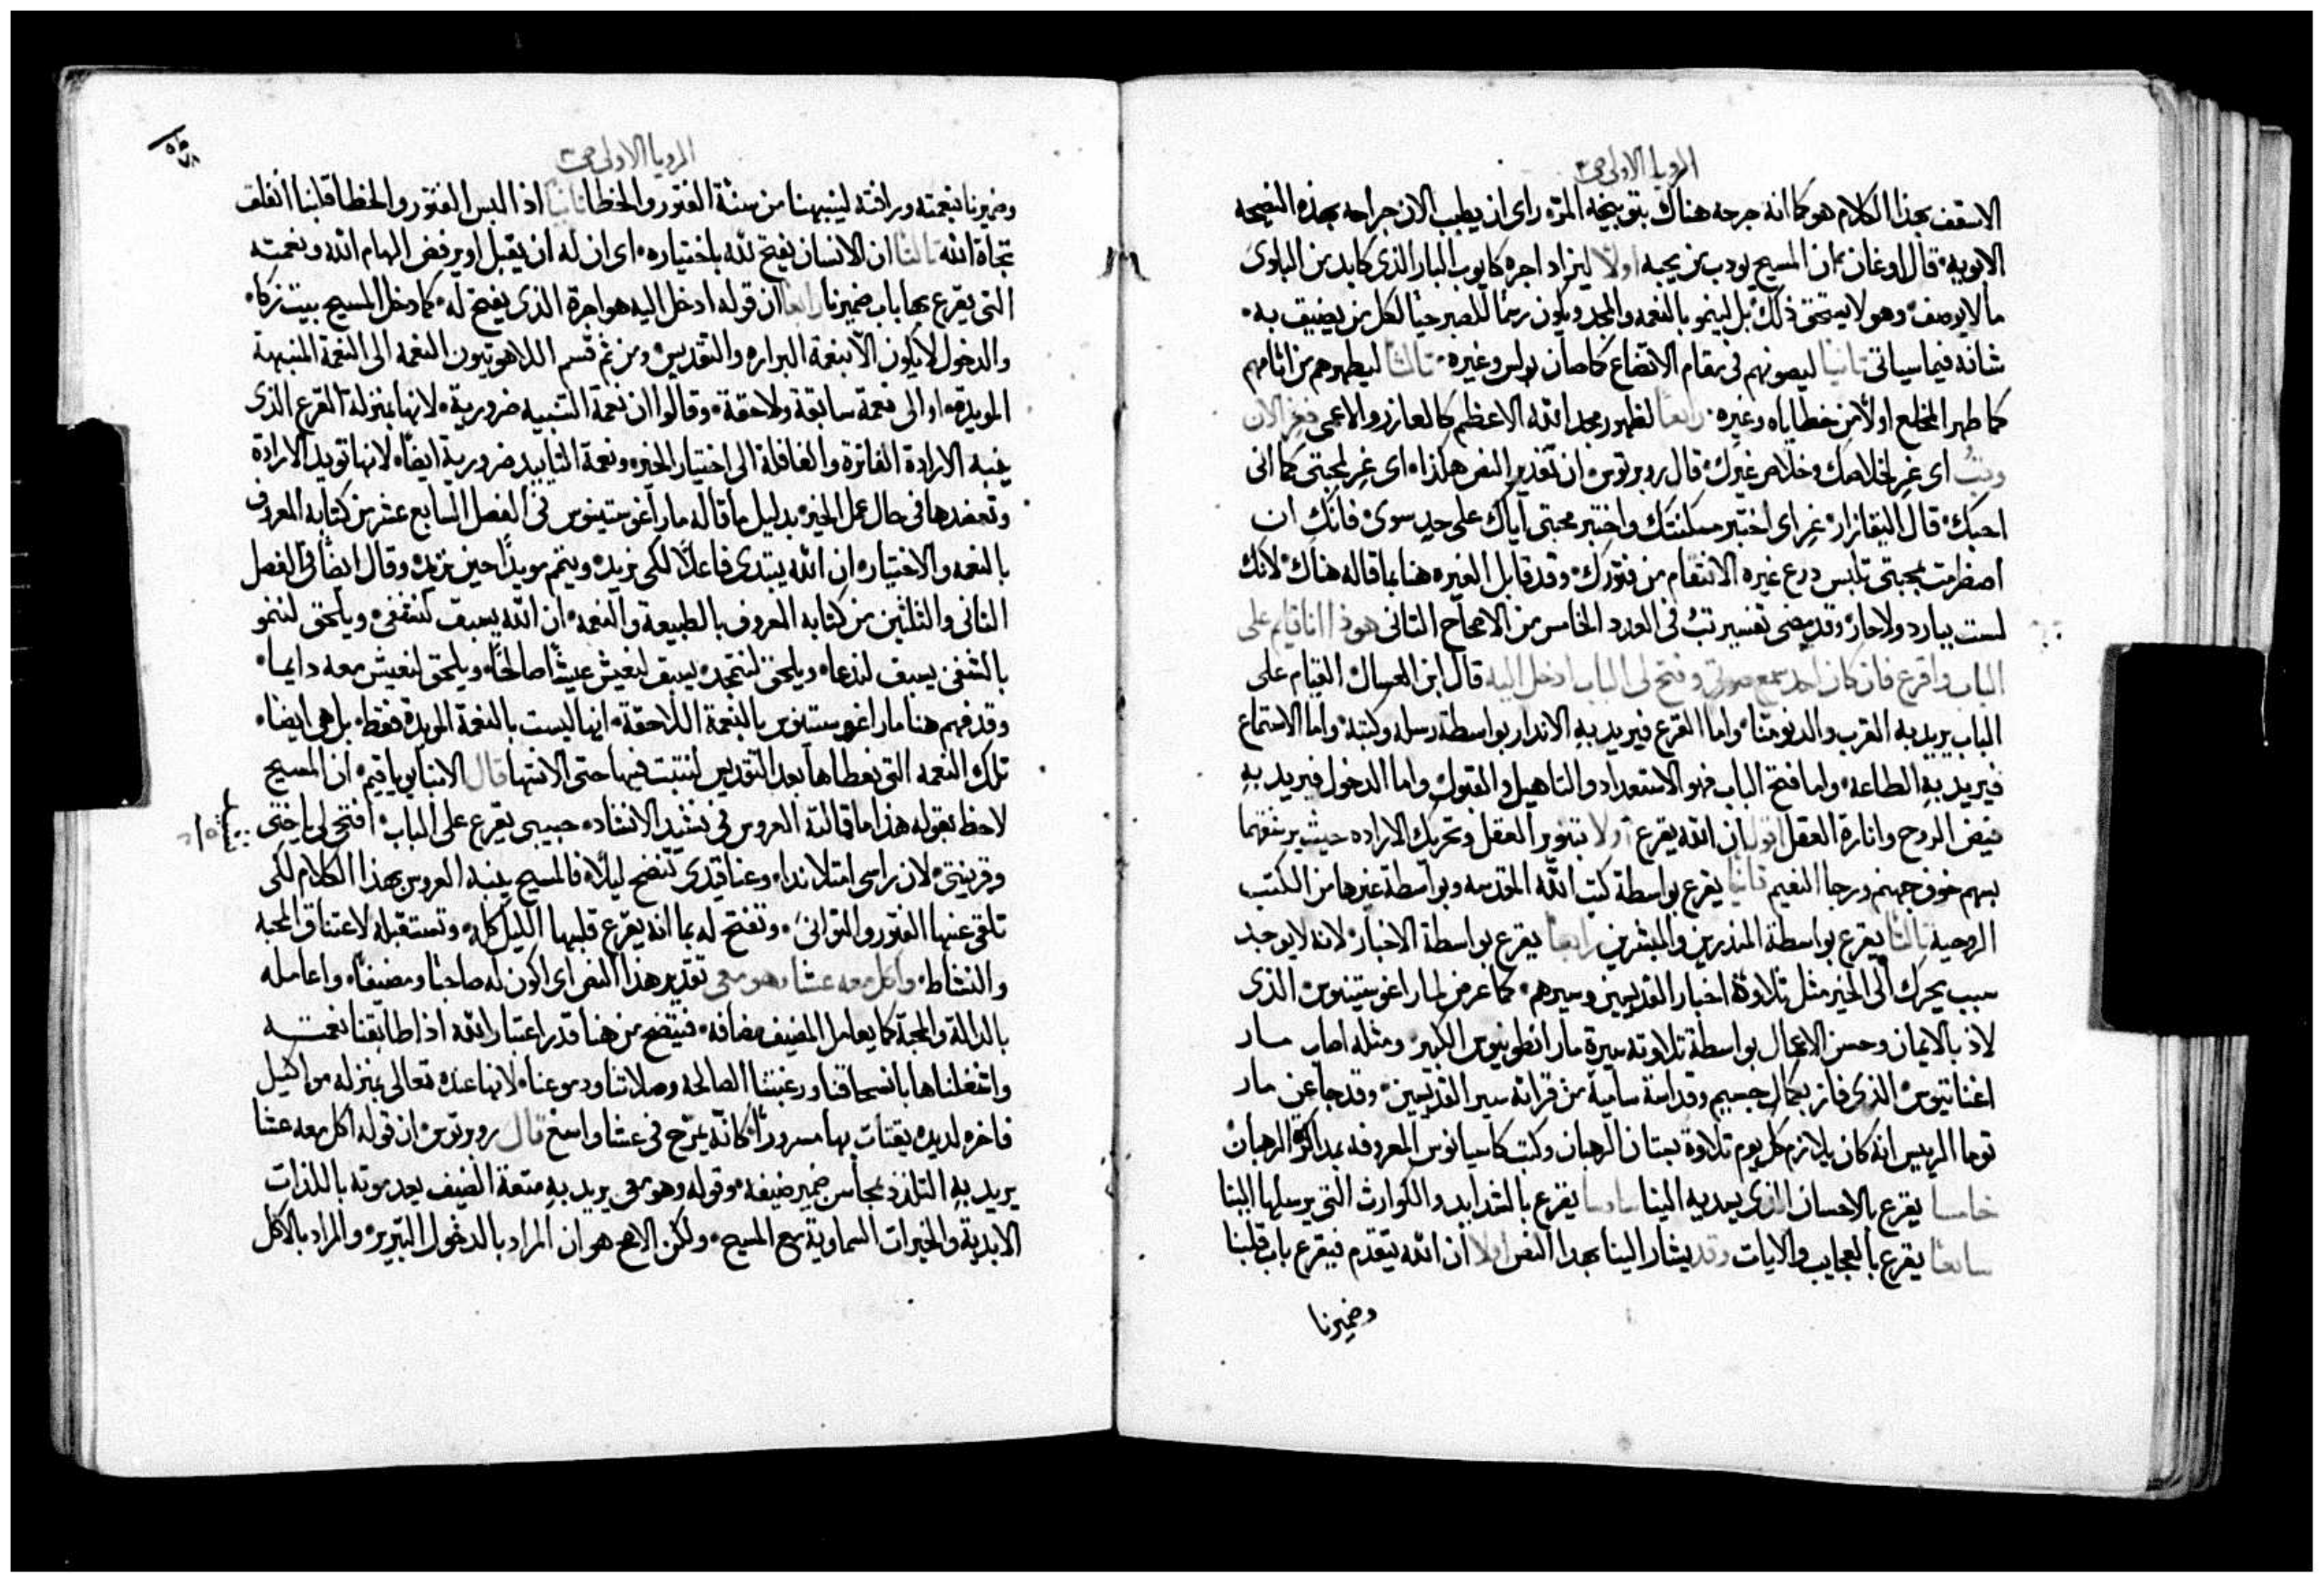 الرويا الاولى ص٣
الاسقف بهذا الكلام هو كما انه جرحه هناك بتوبيخه المرّه راى ان يطيب الان جراحه بهذه النصيحه
الابويه. قال اوغان بان المسيح يودب من يحبه اولًا ليزاد اجره كايوب البار الذى كابد من البلوى
ما لا يوصف وهو لا يستحق ذلك بل لينمو بالنعمه والمجد ويكون رسمًا للصبر حيًا لكل من يضيق به.
شانه فيما سياتى ثانيًا ليصونهم فى مقام الاتضاع كما صان بولس وغيره. ثالثًا ليطهرهم من اثامهم
كما طهر المخلع اولًا من خطاياه وغيره. رابعًا لظهور مجد الله الاعظم كالعازر والاعمى فغِر الان
وتبُ اى غِر لخلاصك وخلاص غيرك. قال روبرتوس ان تقدير النص هكذا. اى غِر لمحبتى كما انى
احبك. قال البيقازار غِر اى اختبر مسكنتك واختبر محبتى اياك على حدٍ سوى فانك ان
اضطرمت بمحبتى تلبس درع غيره الانتقام من فتورك. وقد قابل الغيره هنا بما قاله هناك. لانك
لست ببارد ولا حار وقد مضى تفسير تبُ فى العدد الخامس من الاصحاح الثانى هوذا انا قايم على
الباب واقرع فان كان احد سمع صوتى وفتح لى الباب ادخل اليه قال ابن العسال القيام على
الباب يريد به القرب والدنو منا واما القرع فيريد به الانذار بواسطة رسله وكتبه واما الاستماع
فيريد به الطاعه. واما فتح الباب فهو الاستعداد والتاهيل والقبول واما الدخول فيريد به
فيض الروح وانارة العقل اقول ان الله يقرع اولًا بتنوير العقل وتحريك الاراده حيث يرشقهما
بسهم خوف جهنم ورجا النعيم ثانيًا يقرع بواسطة كتب الله المقدسه وبواسطة غيرها من الكتب
الروحيه ثالثًا يقرع بواسطة المنذرين والمبشرين رابعًا يقرع بواسطة الاخبار لانه لا يوجد
سبب يحرك الى الخير مثل تلاوة اخبار القديسين وسيرهم. كما عرض لمار اغوستينوس الذى
لاذ بالايمان وحسن الاعمال بواسطة تلاوته سيرة مار انطونيوس الكبير ومثله اصاب مار
اغناتيوس الذى فاز بكمال جسيم وقداسة سامية من قراته سير القديسين. وقد جا عن مار
توما الريس انه كان يلازم كل يوم تلاوة بستان الرهبان وكتب كاسيانوس المعروفه بمذاكرة الرهبان
خامسًا يقرع بالاحسان الذى يهديه الينا سادسًا يقرع بالشدايد والكوارث التى يرسلها الينا
سابعًا يقرع بالعجايب والايات وقد يشار الينا بهذا النص اولًا ان الله يتقدم فيقرع باب قلبنا
وضميرنا
الرويا الاولى ص٣
وضميرنا بنعمته ورافته لينبهنا من سنة الفتور والخطا ثانيًا اذ البس الفتور والخطا قلبنا انغلق
تجاه الله ثالثًا ان الانسان يفتح لله باختياره. اى ان له ان يقبل او يرفض الهام الله ونعمته
التى يقرع بها باب ضميرنا رابعًا ان قوله ادخل اليه هو اجرة الذى يفتح له. كما دخل المسيح بيت زكا.
والدخول لا يكون الا بنعمة البراره والتقديس ومن ثم قسم اللاهوتيون النعمه الى النعمة المنبهة
المويدة. او الى نعمة سابقة ولاحقة. وقالوا ان نعمة التنبيه ضرورية. لانها بمنزلة القرع الذى
ينبه الارادة الفاترة والغافلة الى اختيار الخير. ونعمة التاييد ضرورية ايضًا. لانها تويد الارادة
وتعضدها فى حال عمل الخير. بدليل ما قاله مار اغوستينوس فى الفصل السابع عشر من كتابه المعروف
بالنعمه والاختيار. ان الله يبتدى فاعلًا لكى نريد. ويتمم مويدًا حين نريد. وقال ايضًا فى الفصل
الثانى والثلثين من كتابه المعروف بالطبيعة والنعمه. ان الله يسبق لنشفى. ويلحق لننمو
بالشفى يسبق لندعا. ويلحق لنتمجد. يسبق لنعيش عيشًا صالحًا. ويلحق لنعيش معه دايمًا.
وقد فهم هنا مار اغوستينوس بالنعمة اللاحقة. انها ليست بالنعمة المويدة فقط. بل هى ايضًا.
تلك النعمه التى يعطاها بعد التقديس لنتبت فيها حتى الانتها قال الانبا يوياقيم. ان المسيح
لاحظ بقوله هذا ما قالته العروس فى نشيد الانشاد. حبيبى يقرع على الباب. افتحى لى يا ختى
وقرينتى. لان راسى امتلا ندا. وعناقيدى تنضح ليلًا. فالمسيح ينبه العروس بهذا الكلام لكى
تلقى عنها الفتور والتوانى. وتفتح له بما انه يقرع قلبها الليل كله. وتستقبله لاعتناق المحبه
والنشاط. واكل معه عشا وهو معى تقدير هذا النص اى اكون له صاحبًا ومضيفًا. واعامله
بالدالة والمحبة كما يعامل المضيف مضافه. فيتضح من هنا قدر اعتبار الله اذا طابقنا نعمته
واشغلناها بانسحاقنا ورغبتنا الصالحه وصلاتنا ودموعنا. لانها عنده تعالى بمنزله مواكيل
فاخره لديده يقتات بها مسرورًا. كانه يمرح فى عشا واسع قال روبرتوس ان قوله اكل معه عشا
يريد به التلذذ بمحاسن ضمير ضيفه. وقوله وهو معى يريد به متعة الضيف بعد موته باللذات
الابدية والخيرات السماوية مع المسيح. ولكن الاصح هو ان المراد بالدخول التبرير. والمراد بالاكل